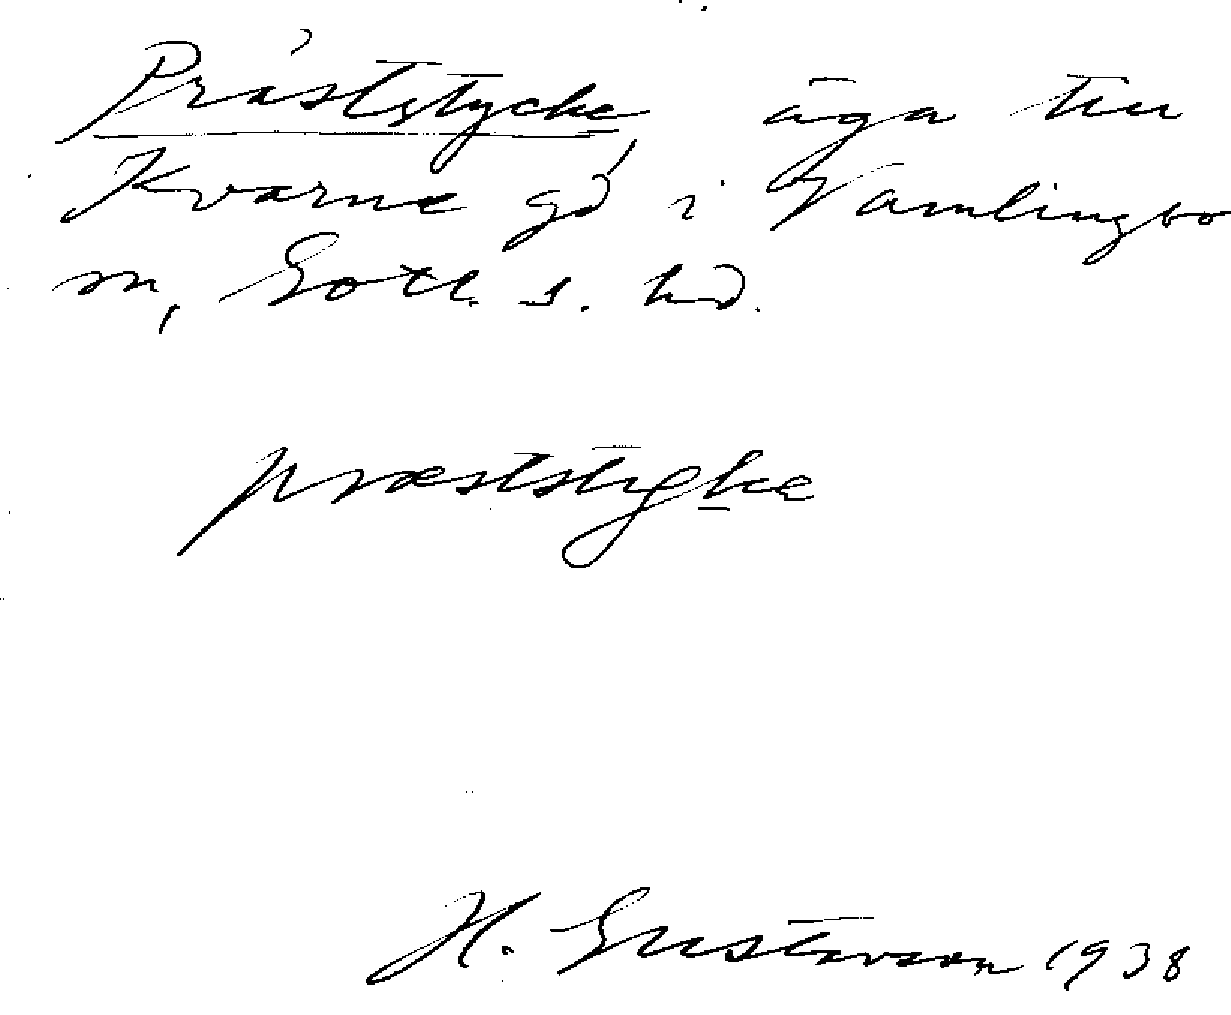 Präststycke, äga till
Kvarne gd i Vamlingbo
sn, Gotl. s. hd.
præststygke
H. Gustavson 1938